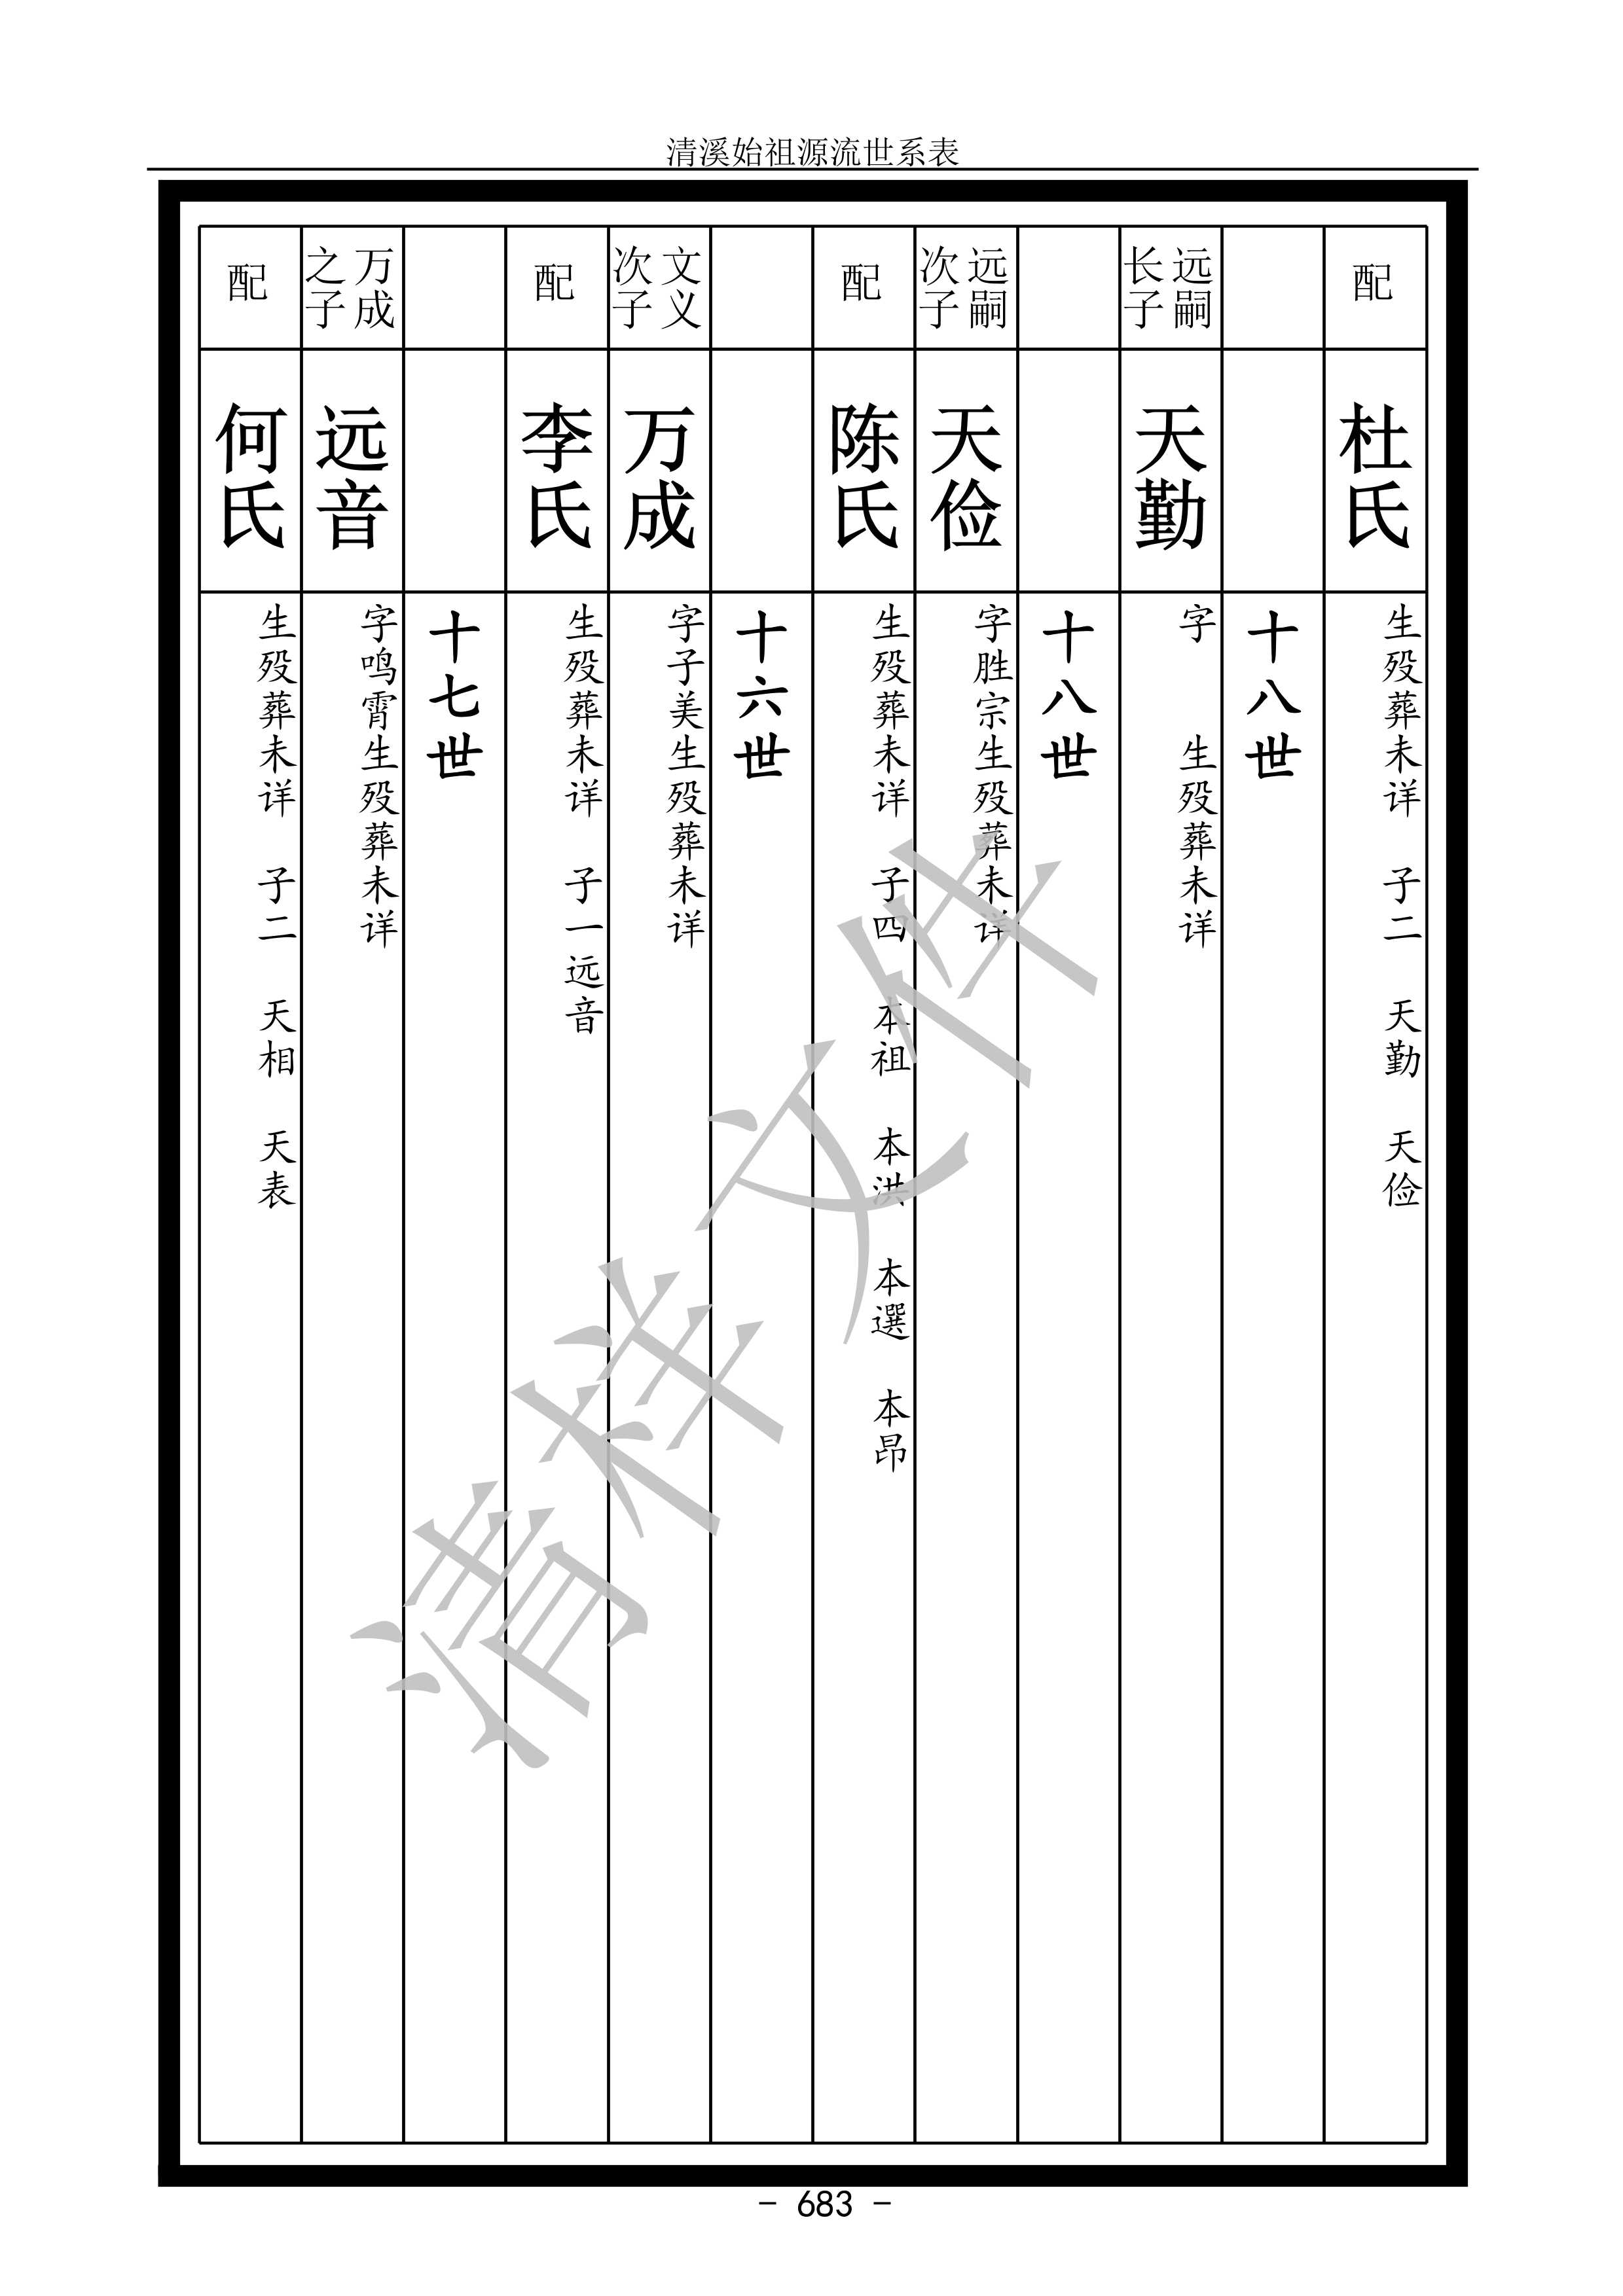 清溪始祖源流世系表
配
杜氏
生殁葬未详　子二　天勤　天俭
十八世
远嗣
长子
天勤
字　　生殁葬未详
十八世
远嗣
次子
天俭
字胜宗生殁葬未详
配
陈氏
生殁葬未详　子四　本祖　本洪　本選　本昂
十六世
文义
次子
万成
字子美生殁葬未详
配
李氏
生殁葬未详　子一远音
十七世
万成
之子
远音
字鸣霄生殁葬未详
配
何氏
生殁葬未详　子二　天相　天表
清样文件
- 683 -